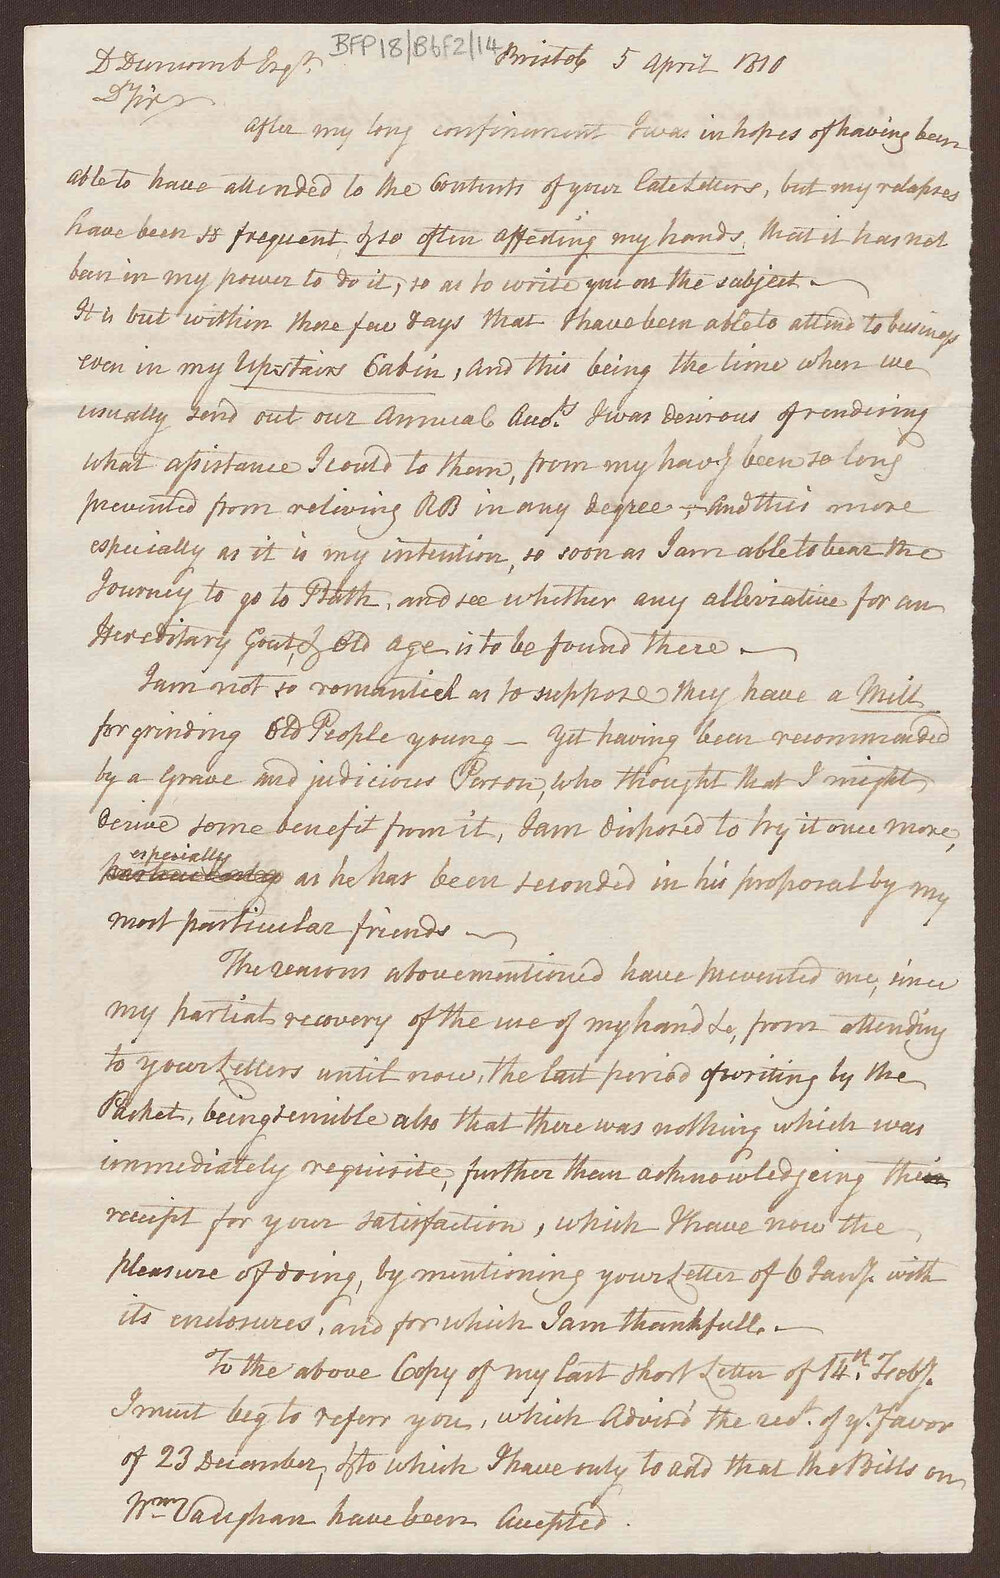 BFP18/B6F2/14
D Duncomb Esqr. Bristol 5 April 1810
Dr Sir
After my long confinement I was in hopes of having been
able to have attended to the Contents of your late Letters, but my relapses
have been so frequent, & so often affecting my hands, that it has not
been in my power to do it, so as to write you on the subject.
It is but within these few days that I have been able to attend to business
even in my Upstairs Cabin, and this being the time when we
usually send out our Annual Accots. I was desirous of rendering
what assistance I could to them, from my havg been so long
prevented from reliving RB in any degree; - And this more
especially as it is my intention, so soon as I am able to bear the
Journey to go to Bath, and see whether any alleviative for an
Hereditary Gout, & Old age is to be found there.
I am not so romantick as to suppose they have a Mill
for grinding Old People young - Yet having been recommended
by a Grave and judicious Person, who thought that I might
derive some benefit from it, I am disposed to try it once more,
particularly especially as he has been seconded in his proposal by my
most particular friends
The reasons abovementioned have prevented me, since
my partial recovery of the use of my hand &c, from attending
to your Letters until now, the last period of writing by the
Packet, being sensible also that there was nothing which was
immediately requisite, further than acknowledgeing their
receipt for your satisfaction, which I have now the
pleasure of doing, by mentioning your Letter of 6 Jany. with
its enclosures, and for which I am thankfull.
To the above Copy of my last short Letter of 14th. Feby.
I must beg to referr you, which Advis'd the red. of yr. favor
of 23 December, & to which I have only to add that the Bills on
Wm Vaughan have been Accepted.